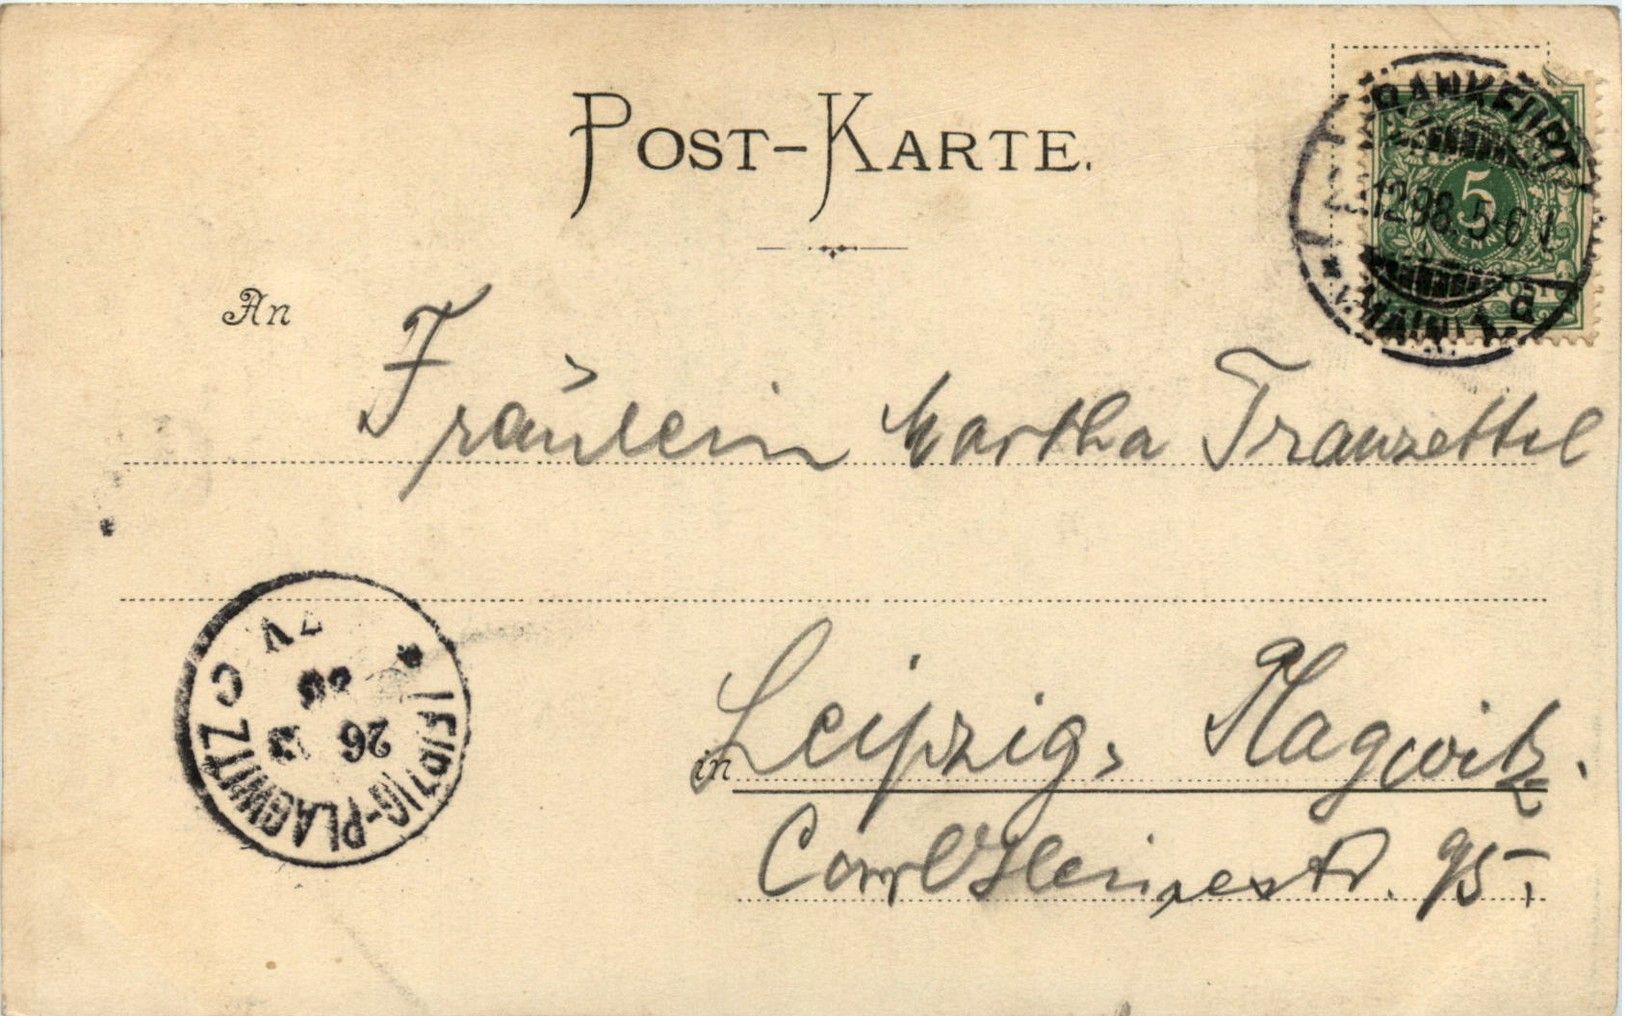 POST-KARTE.
FRANKFURT
12 98. 5-6 N
(MAIN) 1. d
5
An
Fräulein Martha Franzettel
in Leipzig, Plagwitz.
Carl Heinestr. 95.
LEIPZIG-PLAGWITZ C
7 V
26 12
98